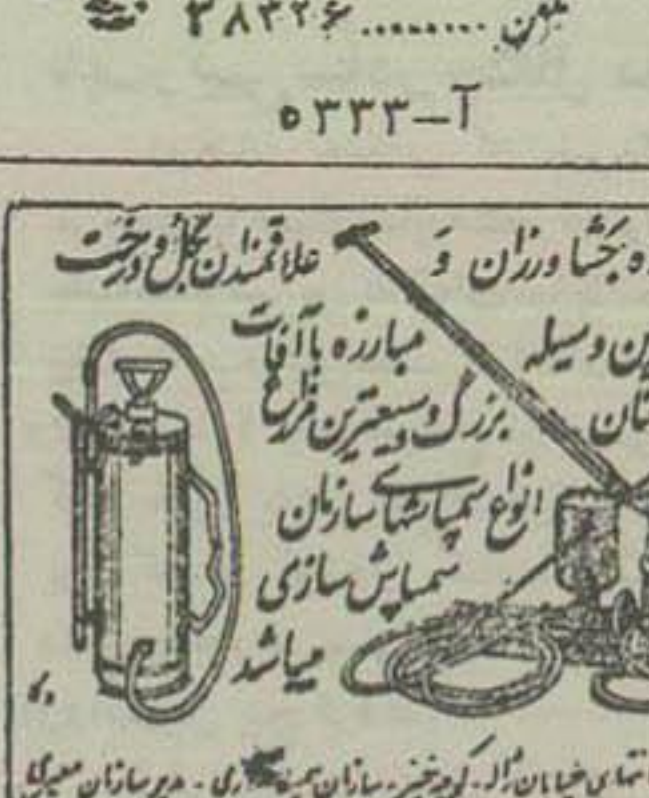 تلفن ......... ۳۸۳۲۶
آ-۵۳۳۳
کشاورزان و علاقمندان گل و درخت
وسیله مبارزه با آفات
بزرگ و وسیعترین مزارع
انواع سمپاشهای سازمان
سمپاش سازی
میباشد
انتهای خیابان ژاله - کوچه - سازمان - مدیر سازمان معیری